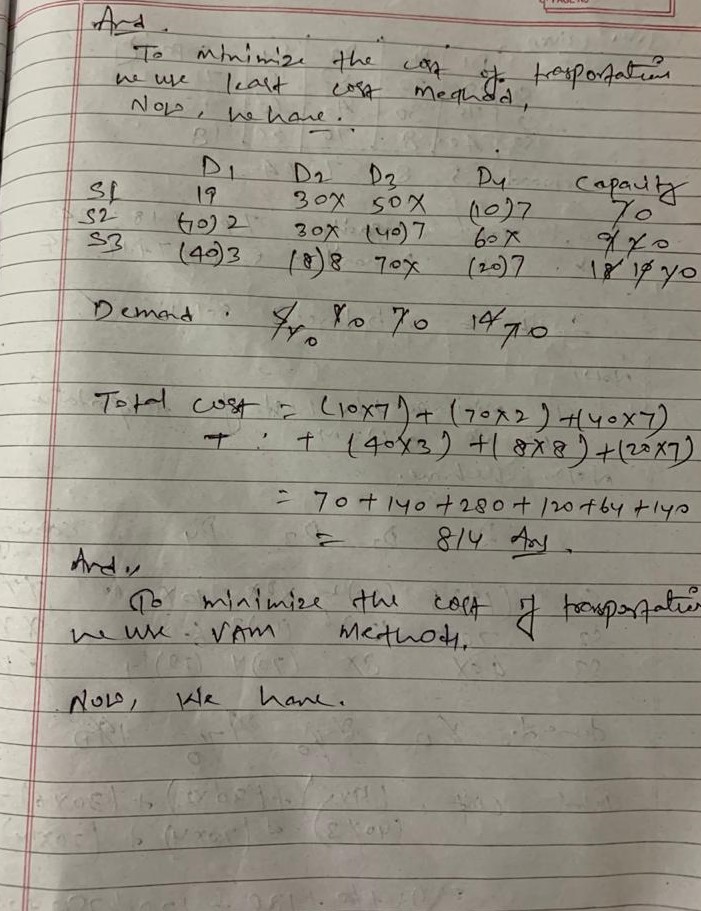 And.
To minimize the cost of trasportation
we use least cost Method,
Now, we have.
D1 D2 D3 D4 Capacity
S1 19 30X 50X (10)7 70
S2 (70)2 30X (40)7 60X 9 2 0
S3 (40)3 (8)8 70X (20)7 18 10 40
Demand. 5 8 0 7 0 14 7 0
Total cost = (10x7) + (70x2) + (40x7)
+ (40x3) + (8x8) + (20x7)
= 70 + 140 + 280 + 120 + 64 + 140
= 814 Ans.
And,
To minimize the cost of transportation
we use VAM Method,
Now, We have.